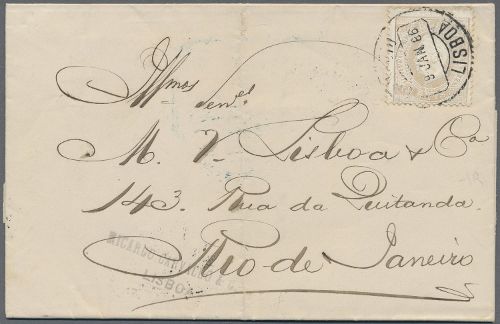 LISBOA
9 JAN 86
Illmos Senres
M. V. Lisboa & Ca
143 Rua da Quitanda
Rio de Janeiro
RICARDO CARVALHO & C.
LISBOA